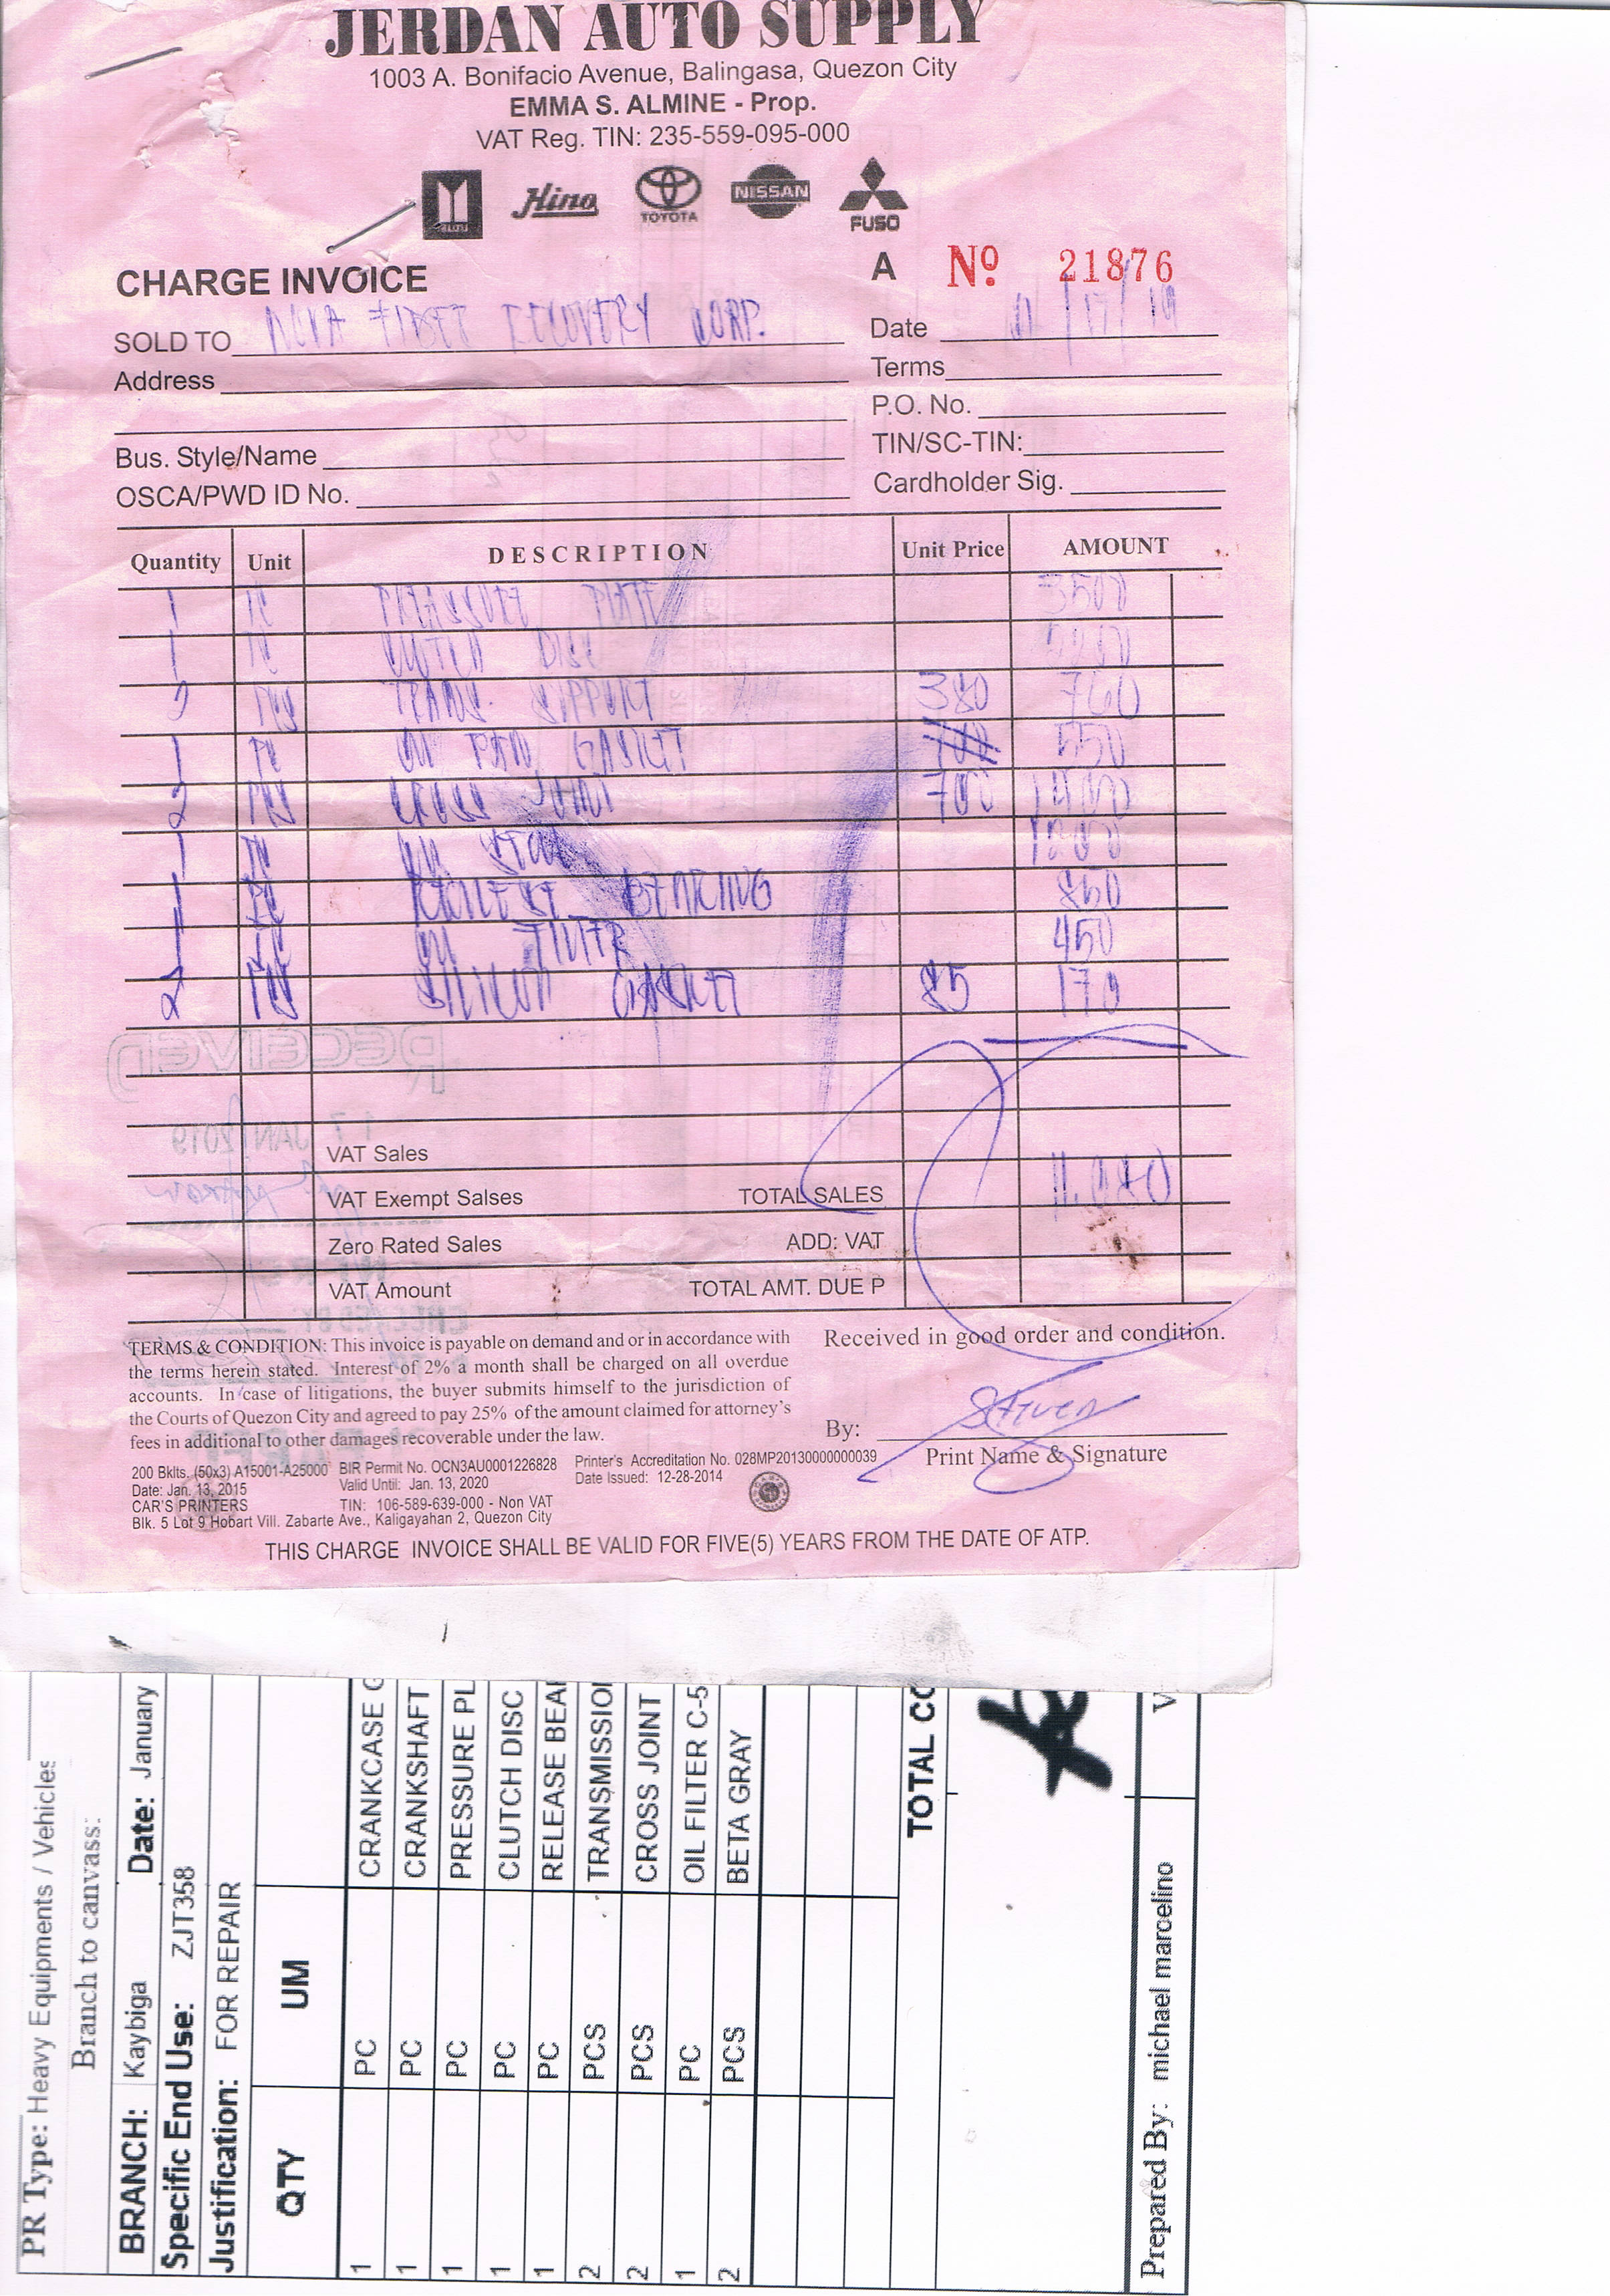 JERDAN AUTO SUPPLY
1003 A. Bonifacio Avenue, Balingasa, Quezon City
EMMA S. ALMINE - Prop.
VAT Reg. TIN: 235-559-095-000
ISUZU Hino TOYOTA NISSAN FUSO
CHARGE INVOICE A Nº 21876
SOLD TO RECOVERY CORP. Date
Address Terms
P.O. No.
Bus. Style/Name TIN/SC-TIN:
OSCA/PWD ID No. Cardholder Sig.
Quantity Unit DESCRIPTION Unit Price AMOUNT
1 PC PRESSURE PLATE 3500
1 PC CLUTCH DISC
2 PCS TRANS. SUPPORT 380 760
1 PC OIL PAN GASKET 550
2 PCS CROSS JOINT 700 1400
1 PC OIL
1 PC RELEASE BEARING 850
1 PC OIL FILTER 450
2 PCS SILICON GASKET 85 170
RECEIVED
17 JAN 2019
VAT Sales
VAT Exempt Salses TOTAL SALES
Zero Rated Sales ADD: VAT
VAT Amount TOTAL AMT. DUE P
TERMS & CONDITION: This invoice is payable on demand and or in accordance with
the terms herein stated. Interest of 2% a month shall be charged on all overdue
accounts. In case of litigations, the buyer submits himself to the jurisdiction of
the Courts of Quezon City and agreed to pay 25% of the amount claimed for attorney's
fees in additional to other damages recoverable under the law.
Received in good order and condition.
By:
Print Name & Signature
200 Bklts. (50x3) A15001-A25000 BIR Permit No. OCN3AU0001226828 Printer's Accreditation No. 028MP20130000000039
Date: Jan. 13, 2015 Valid Until: Jan. 13, 2020 Date Issued: 12-28-2014
CAR'S PRINTERS TIN: 106-589-639-000 - Non VAT
Blk. 5 Lot 9 Hobart Vill. Zabarte Ave., Kaligayahan 2, Quezon City
THIS CHARGE INVOICE SHALL BE VALID FOR FIVE(5) YEARS FROM THE DATE OF ATP.
PR Type: Heavy Equipments / Vehicles
Branch to canvass:
BRANCH: Kaybiga Date: January
Specific End Use: ZJT358
Justification: FOR REPAIR
QTY UM
1 PC CRANKCASE G
1 PC CRANKSHAFT
1 PC PRESSURE PL
1 PC CLUTCH DISC
1 PC RELEASE BEA
2 PCS TRANSMISSIO
2 PCS CROSS JOINT
1 PC OIL FILTER C-5
2 PCS BETA GRAY
TOTAL CO
Prepared By: michael marcelino V